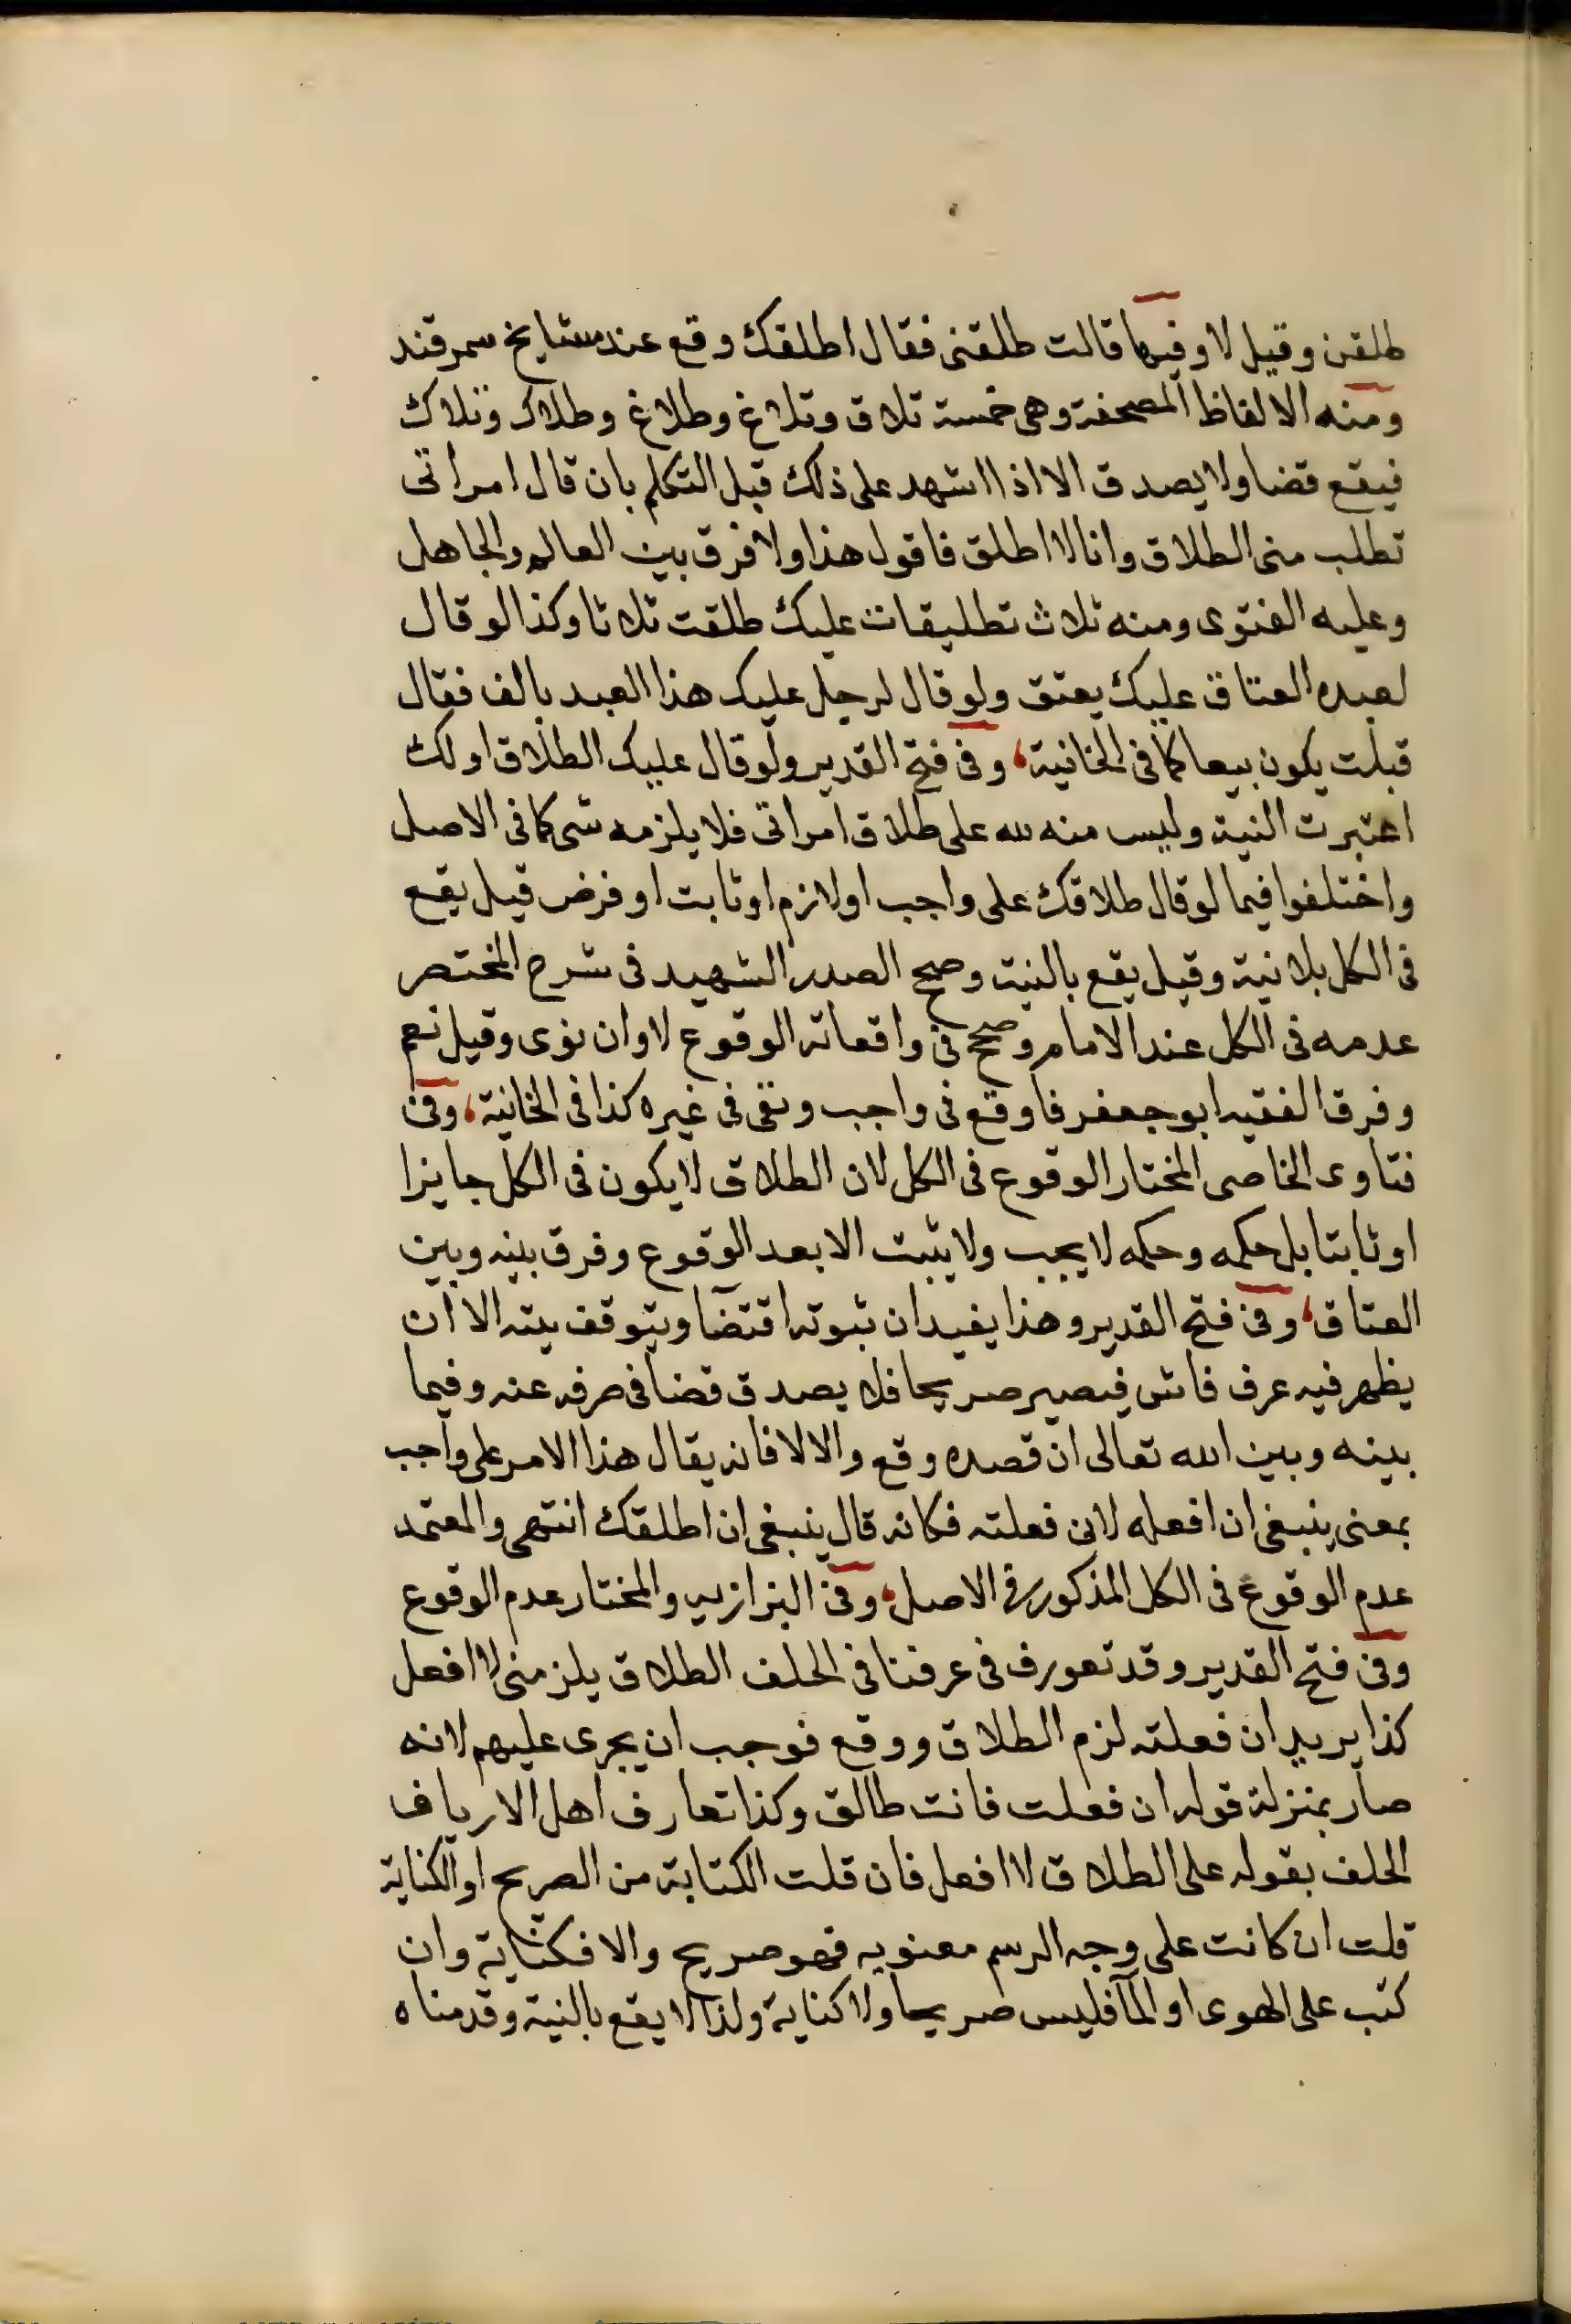 طلقن وقيل لا وفيها قالت طلقنى فقال اطلقك وقع عند مشايخ سمرقند
ومنه الالفاظ المصحفة وهى خمسة تلاق وتلاغ وطلاغ وطلاك وتلاك
فيقع قضا ولا يصدق الا اذا اشهد على ذلك قبل التكلم بان قال امراتى
تطلب منى الطلاق وانا لا اطلق فاقول هذا ولا فرق بين العالم والجاهل
وعليه الفتوى ومنه ثلاث تطليقات عليك طلقت ثلاثا وكذا لو قال
لعبده العتاق عليك يعتق ولو قال لرجل عليك هذا العبد بالف فقال
قبلت يكون بيعا كما فى الخانية، وفى فتح القدير ولو قال عليك الطلاق او لك
اعتبرت النية وليس منه لله على طلاق امراتى فلا يلزمه شى كما فى الاصل
واختلفوا فيما لو قال طلاقك على واجب او لازم او ثابت او فرض قيل يقع
فى الكل بلا نية وقيل يقع بالنية وصحح الصدر الشهيد فى شرح المختصر
عدمه فى الكل عند الامام وصحح فى واقعاته الوقوع لا وان نوى وقيل نعم
وفرق الفقيه ابو جعفر فاوقع فى واجب ونفى فى غيره كذا فى الخانية، وفى
فتاوى الخاصى المختار الوقوع فى الكل لان الطلاق لا يكون فى الكل جايزا
او ثابتا بل حكمه وحكمه لا يجب ولا يثبت الا بعد الوقوع وفرق بينه وبين
العتاق، وفى فتح القدير وهذا يفيد ان ثبوته اقتضا ويتوقف بيته الا ان
يظهر فيه عرف فاش فيصير صريحا فلا يصدق قضا فى صرفه عنه وفيما
بينه وبين الله تعالى ان قصده وقع والا لا فانه يقال هذا الامر على واجب
بمعنى ينبغى ان افعله لانى فعلته فكانه قال ينبغى ان اطلقك انتهى والمعتمد
عدم الوقوع فى الكل المذكور فى الاصل، وفى البزازيه والمختار عدم الوقوع
وفى فتح القدير وقد تعورف فى عرفنا فى الحلف الطلاق يلزمنى لا افعل
كذا يريد ان فعلته لزم الطلاق ووقع فوجب ان يجرى عليهم لانه
صار بمنزلة قوله ان فعلت فانت طالق وكذا تعارف اهل الارياف
الحلف بقوله على الطلاق لا افعل فان قلت الكتابة من الصريح او الكناية
قلت ان كانت على وجه الرسم معنويه فهو صريح والا فكناية وان
كتب على الهوى او المآ فليس صريحا ولا كناية ولذا لا يقع بالنية وقدمناه